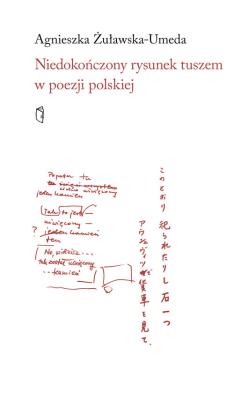 Agnieszka Żuławska-Umeda
Niedokończony rysunek tuszem
w poezji polskiej
ta
jeden kamień
to jest —
?
jeden kamień
ten
No, widzisz...
... kamień
このとおり られたりし 石一つ
アウシュヴィッツ 貨車を見て